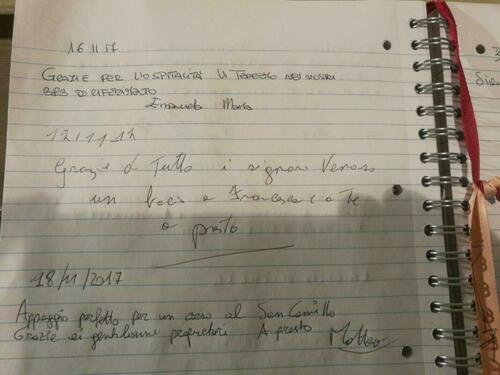 16 11 17
GRAZIE PER L'OSPITALITÀ VI TERREMO NEI NOSTRI
B&B DI RIFERIMENTO
Emanuela Mario
17/11/17
Grazie di Tutto i signori
un bacio a Francesca e a Te
a presto
18/11/2017
Appoggio perfetto per un corso al San Camillo
Grazie ai gentilissimi proprietari A presto Matteo